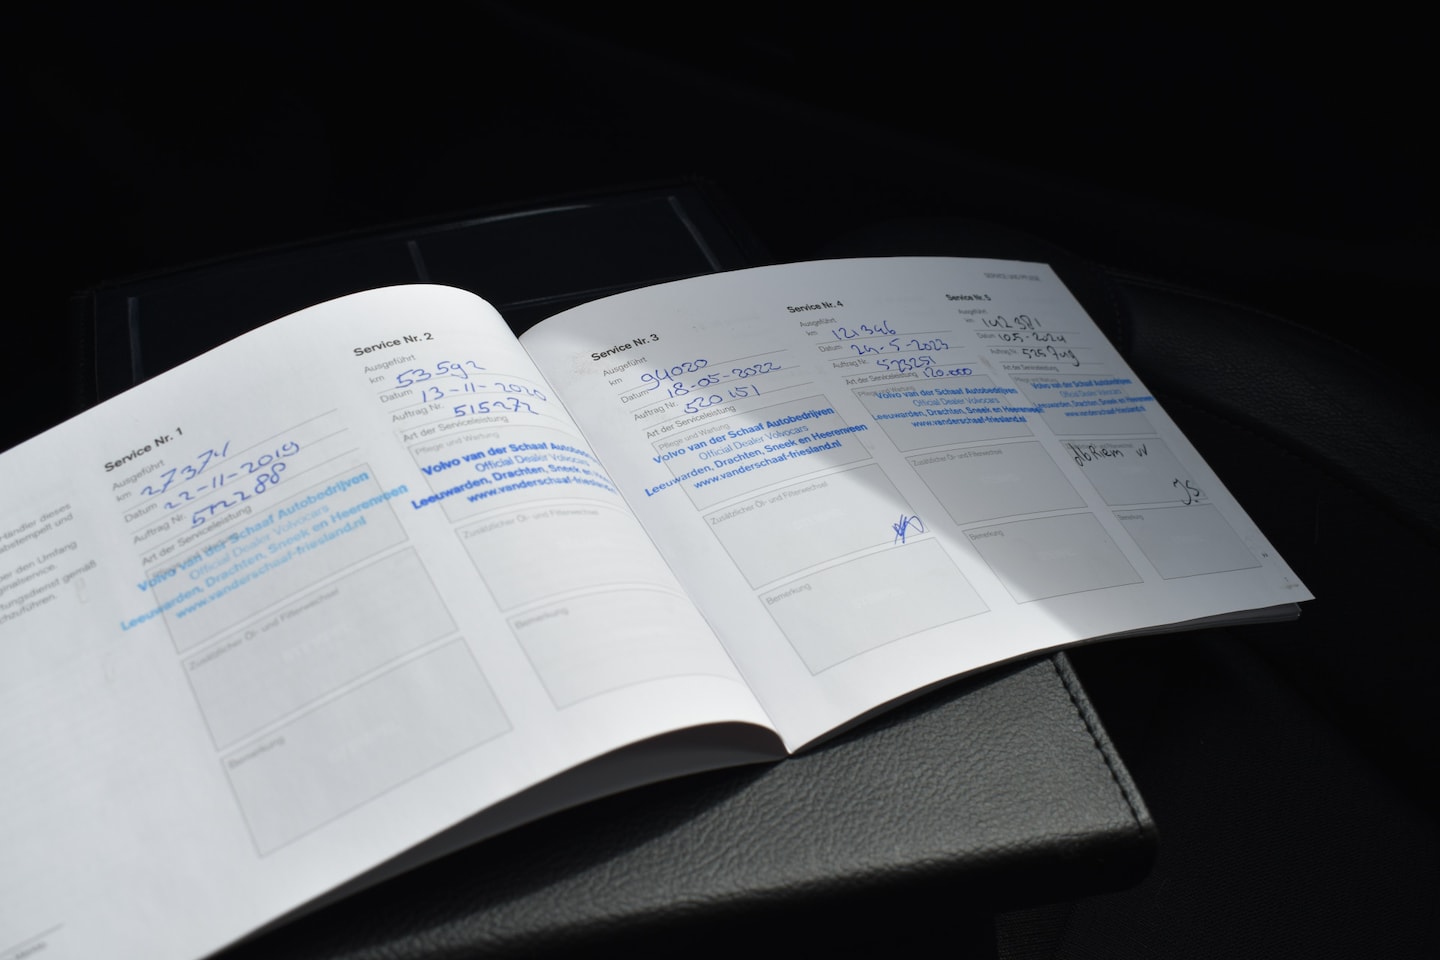 händler dieses
stempel und
über den Umfang
ginalservice.
tungsdienst gemäß
chzuführen.
Service Nr. 1
Ausgeführt
km 27374
Datum 22-11-2019
Auftrag Nr. 512288
Art der Serviceleistung
Volvo van der Schaaf Autobedrijven
Official Dealer Volvocars
Leeuwarden, Drachten, Sneek en Heerenveen
www.vanderschaaf-friesland.nl
Zusätzlicher Öl- und Filterwechsel
Bemerkung
Service Nr. 2
Ausgeführt
km 53592
Datum 13-11-2020
Auftrag Nr. 515272
Art der Serviceleistung
Pflege und Wartung
Volvo van der Schaaf Autobedrijven
Official Dealer Volvocars
Leeuwarden, Drachten, Sneek en
www.vanderschaaf-friesland
Zusätzlicher Öl- und Filterwechsel
Bemerkung
Service Nr. 3
Ausgeführt
km 94020
Datum 18-05-2022
Auftrag Nr. 520151
Art der Serviceleistung
Pflege und Wartung
Volvo van der Schaaf Autobedrijven
Official Dealer Volvocars
Leeuwarden, Drachten, Sneek en Heerenveen
www.vanderschaaf-friesland.nl
Zusätzlicher Öl- und Filterwechsel
Bemerkung
Service Nr. 4
Ausgeführt
km 121346
Datum 24-5-2023
Auftrag Nr. 523251
Art der Serviceleistung 120.000
Pflege und Wartung
Volvo van der Schaaf Autobedrijven
Official Dealer Volvocars
Leeuwarden, Drachten, Sneek en Heerenveen
www.vanderschaaf-friesland.nl
Zusätzlicher Öl- und Filterwechsel
Bemerkung
Service Nr. 5
Ausgeführt
km 142381
Datum
Auftrag Nr.
Art der Serviceleistung
Pflege und Wartung
Volvo van der Schaaf Autobedrijven
Official Dealer Volvocars
Leeuwarden, Drachten, Sneek en
www.vanderschaaf-friesland.nl
Riem
Bemerkung